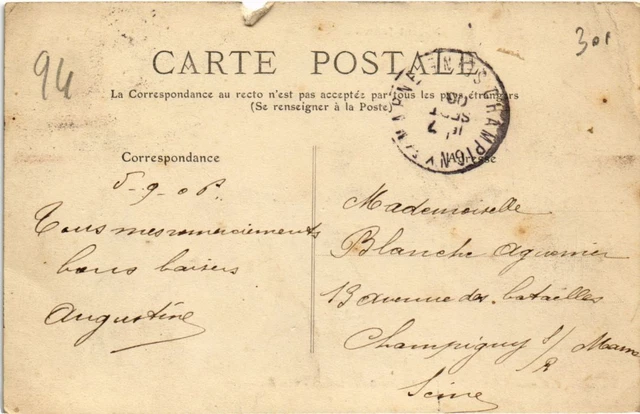 94
301
CARTE POSTALE
La Correspondance au recto n'est pas acceptée par tous les pays étrangers
(Se renseigner à la Poste)
Correspondance
Adresse
5-9-08
Tous mes remerciements
bons baisers
Augustine
Mademoiselle
Blanche
13 avenue des batailles
Champigny s/ Marne
Seine